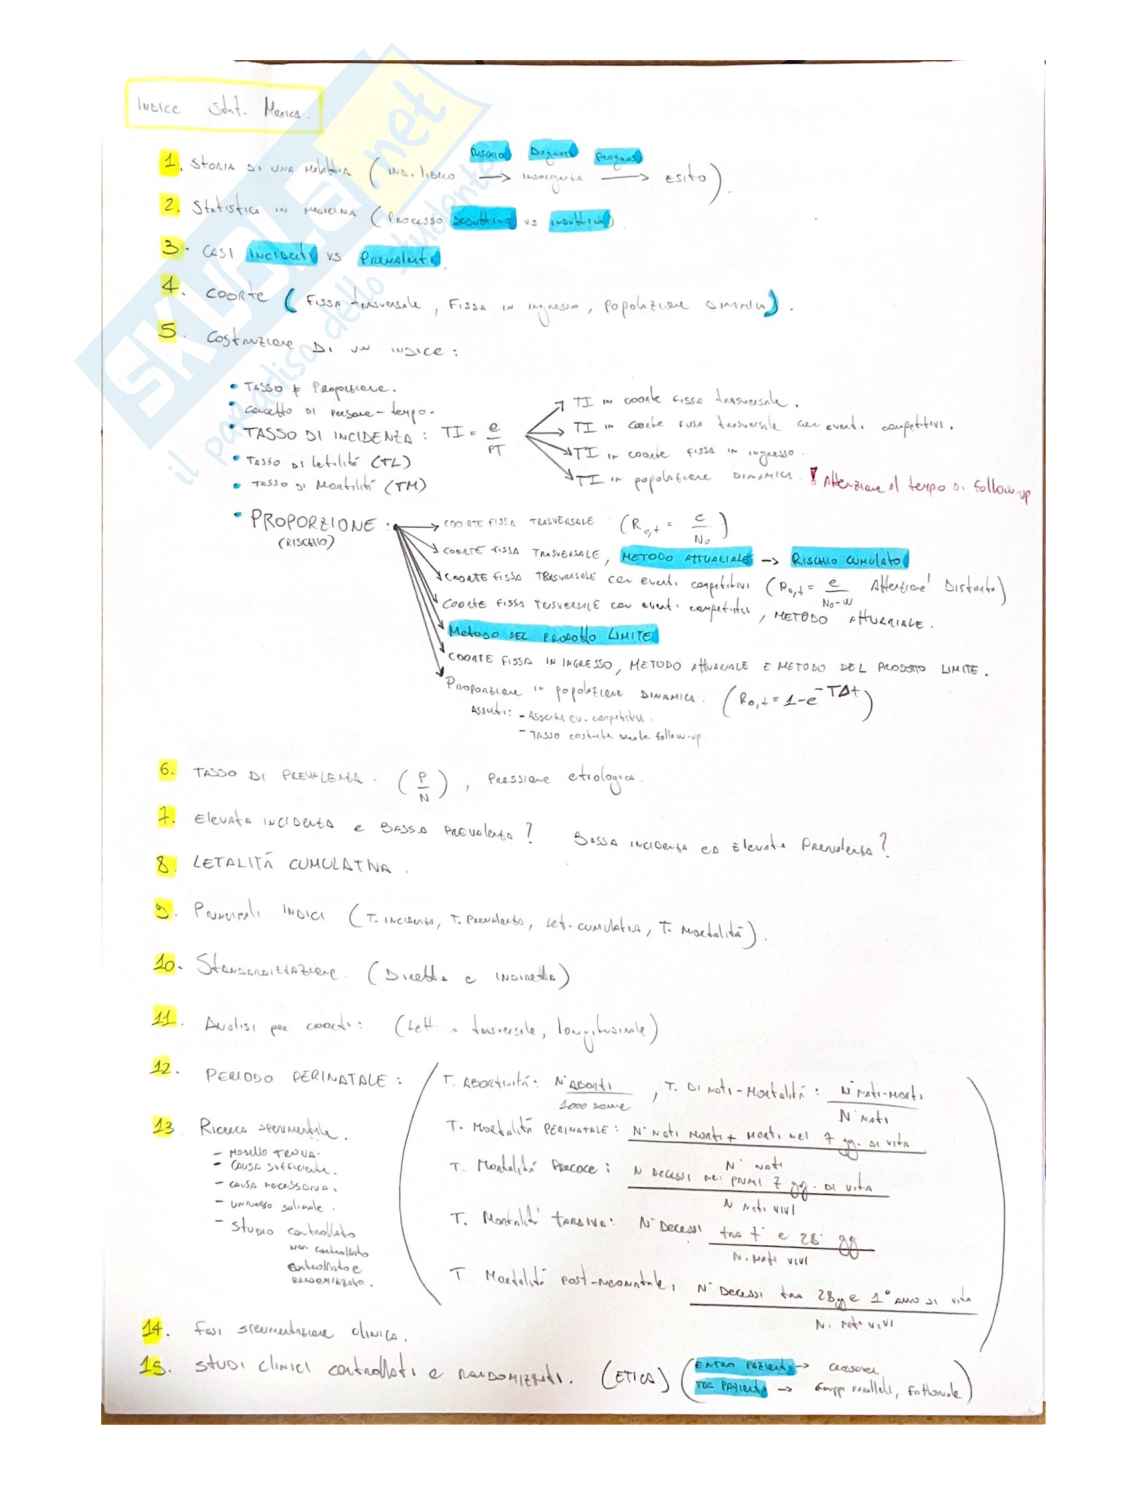 INDICE Stat. Medica.
1. STORIA DI UNA MALATTIA ( IND. LIBERO → insorgenza → ESITO ).
Diagnosi
Prognosi
2. Statistica in MEDICINA ( PROCESSO DEDUTTIVO VS INDUTTIVO )
3. CASI INCIDENTI VS PREVALENTI
4. COORTE ( FISSA trasversale, FISSA in ingresso, popolazione DINAMICA ).
5. Costruzione DI UN INDICE :
• TASSO ≠ Proporzione.
• Concetto DI persone-tempo.
• TASSO DI INCIDENZA : TI = e/PT
• Tasso di letalità (TL)
• TASSO di Mortalità (TM)
TI in coorte fissa trasversale.
TI in coorte fissa trasversale con eventi competitivi.
TI in coorte fissa in ingresso.
TI in popolazione DINAMICA. ! Attenzione al tempo di follow-up
• PROPORZIONE.
(RISCHIO)
COORTE FISSA TRASVERSALE (R0,t = e/N0)
COORTE FISSA TRASVERSALE, METODO ATTUARIALE → RISCHIO CUMULATO
COORTE FISSA TRASVERSALE con eventi competitivi (R0,t = e/N0-W Attenzione! Distinto)
COORTE FISSA TRASVERSALE con eventi competitivi, METODO ATTUARIALE.
Metodo DEL PRODOTTO LIMITE
COORTE FISSA IN INGRESSO, METODO ATTUARIALE E METODO DEL PRODOTTO LIMITE.
Proporzione in popolazione DINAMICA. (R0,t = 1-e^-TΔt)
Assunti: - Assenza ev. competitivi.
- TASSO costante durante follow-up
6. TASSO DI PREVALENZA. (P/N), Pressione etiologica.
7. Elevata INCIDENZA e BASSA PREVALENZA? BASSA INCIDENZA ED Elevata Prevalenza?
8. LETALITÀ CUMULATIVA.
9. Principali INDICI (T. INCIDENZA, T. Prevalenza, Let. cumulativa, T. Mortalità).
10. Standardizzazione. (Diretta e INDIRETTA)
11. Analisi per coorti: (Lett. trasversale, longitudinale)
12. PERIODO PERINATALE :
T. ABORTIVITÀ: N° ABORTI / 1000 donne, T. DI Nati-Mortalità: N° Nati-Morti / N° Nati
T. Mortalità PERINATALE: N° Nati Morti + Morti nei 7 gg. DI VITA / N° Nati
T. Mortalità PRECOCE: N DECESSI nei PRIMI 7 gg. DI VITA / N Nati VIVI
T. Mortalità TARDIVA: N° Decessi tra 7° e 28° gg / N. Nati VIVI
T Mortalità Post-neonatale: N° Decessi tra 28 gg e 1° ANNO DI vita / N. Nati VIVI
13 Ricerca sperimentale.
- MODELLO TEORICO.
- CAUSA SUFFICIENTE.
- CAUSA NECESSARIA.
- universo solidale.
- STUDIO controllato
non controllato
controllato e
RANDOMIZZATO.
14. Fasi sperimentazione clinica.
15. STUDI CLINICI controllati e RANDOMIZZATI. (ETICA) ( ENTRO PAZIENTE → crossover
TRA PAZIENTI → Gruppi paralleli, Fattoriale )
SKUOLA.net
il paradiso dello studente